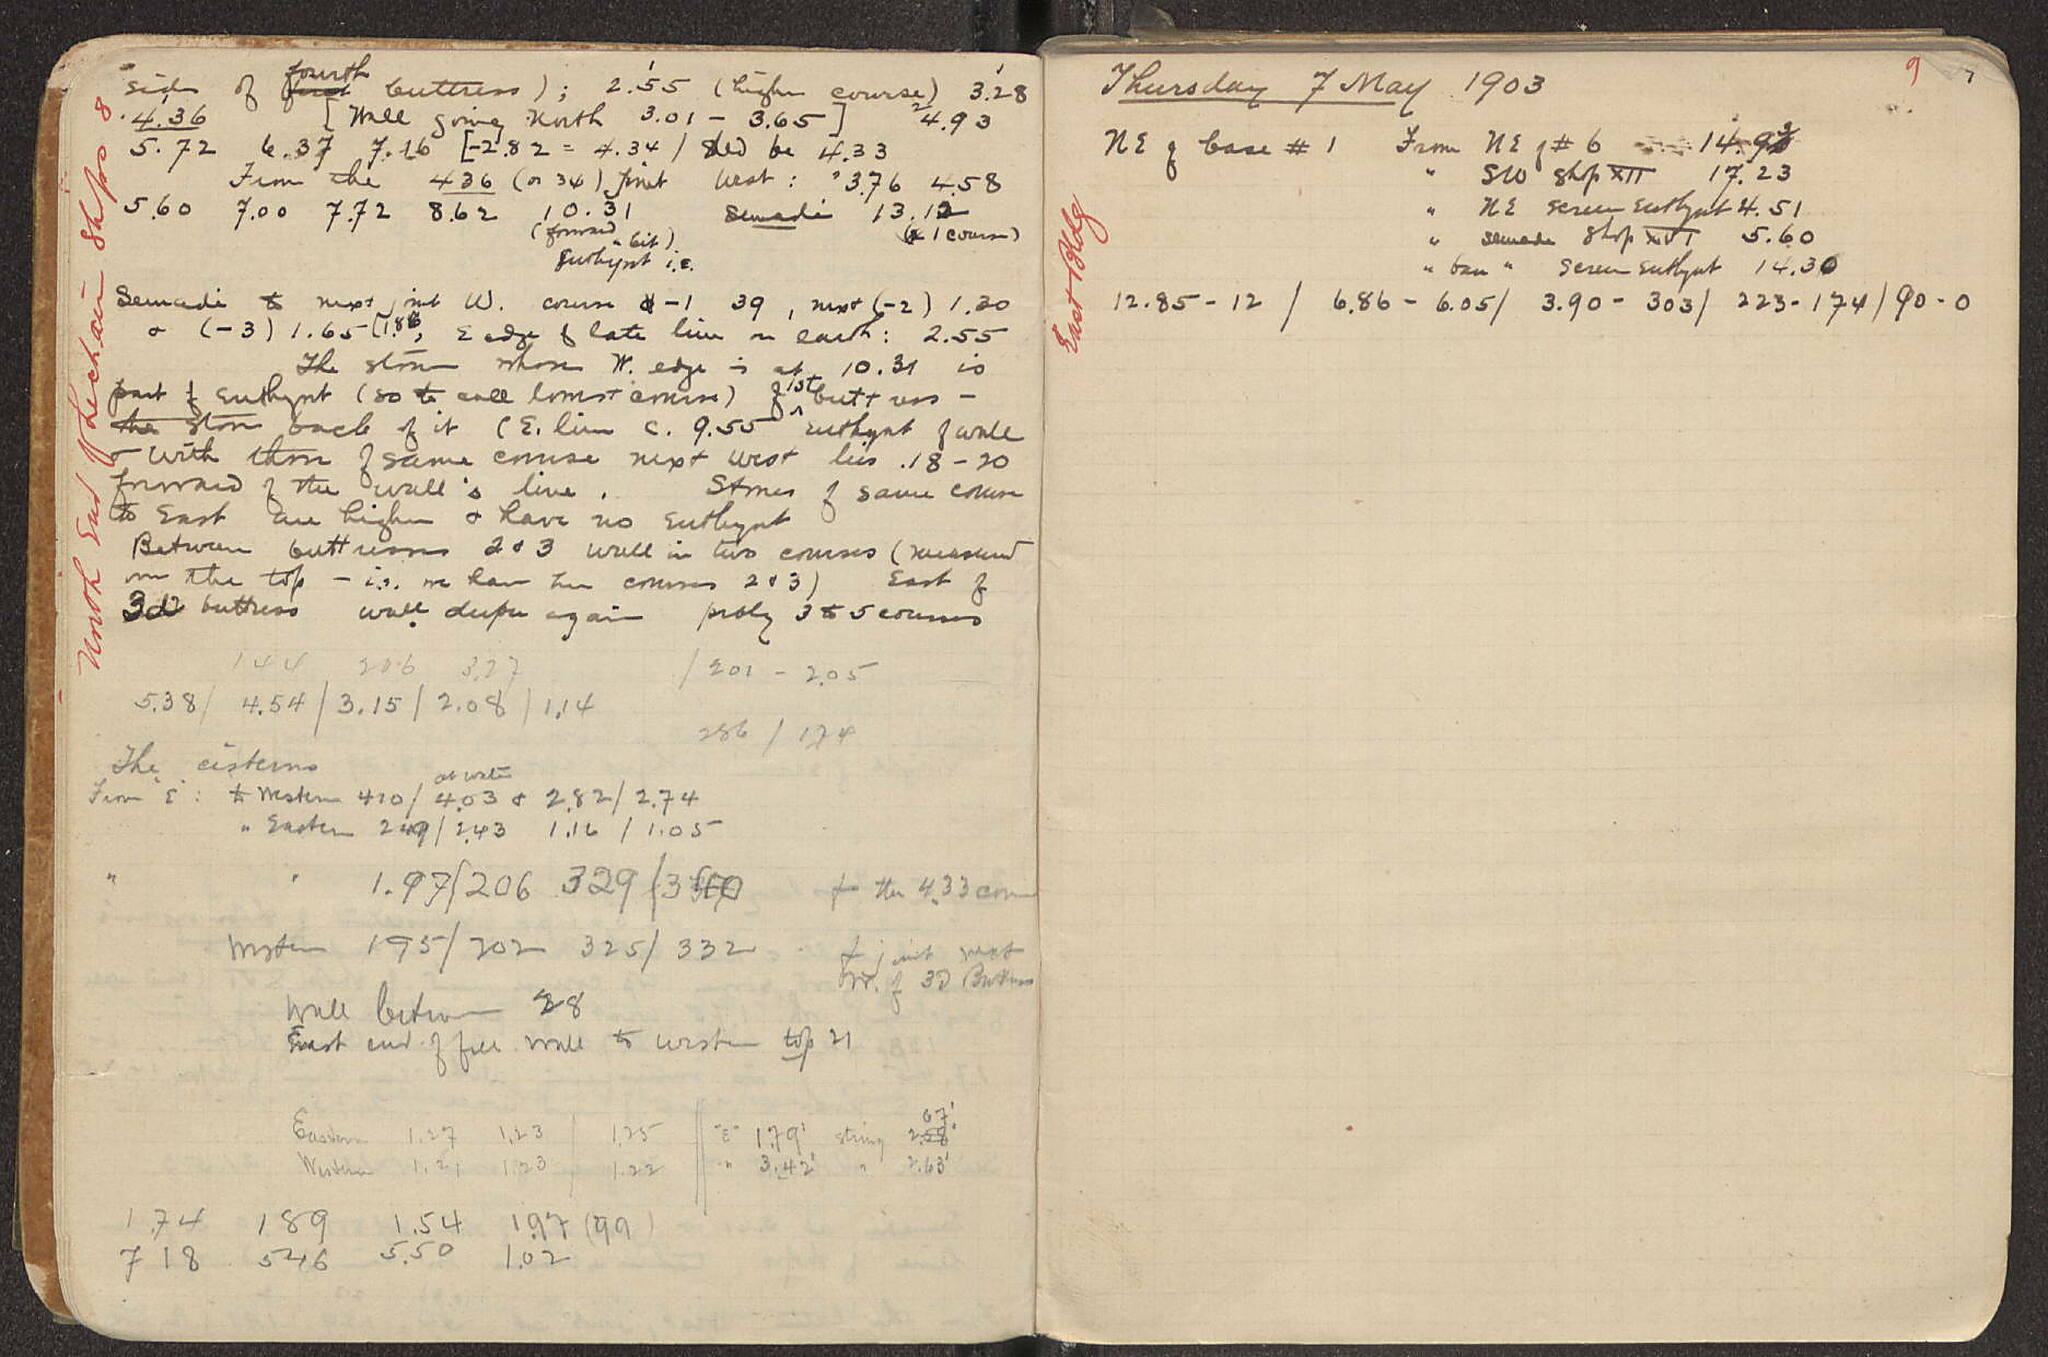 side of fourth buttress); 2.55 (higher course) 3.28
4.36 [Wall going North 3.01 - 3.65] 4.93
5.72 6.37 7.16 [-2.82 = 4.34 / shld be 4.33
From the 436 (or 34) joint West: 3.76 4.58
5.60 7.00 7.72 8.62 10.31 semadi 13.12
(forward (1 course)
" bit)
Euthynt i.e.
Semadi to next joint W. course -1 39, next (-2) 1.30
& (-3) 1.65 [1.86, E edge of late line in earth: 2.55
The stone whose W. edge is at 10.31 is
part of Euthynt (so to call lowest course) of 1st buttress -
the stone back of it (E. line c. 9.55 euthynt of wall
& with those of same course next west lies .18 - 20
forward of the wall's line. Stones of same course
to East are higher & have no Euthynt
Between buttresses 2 & 3 wall in two courses (measured
on the top - i.e. we have here courses 2 & 3) East of
3d buttress wall deeper again probly 3 to 5 courses
North End of Lechaion Shops 8
144 206 3.27 / 201 - 2.05
5.38 / 4.54 / 3.15 / 2.08 / 1.14
286 / 174
The cisterns
at water
From "E": to Western 410 / 4.03 & 2.82 / 2.74
" Eastern 249 / 2.43 1.16 / 1.05
" " 1.97 / 206 329 / 340 for the 4.33 course
Western 195 / 202 325 / 332 for joint next
W. of 3D Buttress
Wall between 28
East end of free wall to western top 21
67'
Eastern 1.27 1.23 / 1.25 "E" 1.79' string 2.58'
Western 1.21 1.23 / 1.22 " 3.42' " 2.63'
1.74 189 1.54 1.97 (99)
7 18 546 5.50 1.02
9 7
Thursday 7 May 1903
NE of base # 1 From NE of # 6 14.93
" SW shop XII 17.23
" NE screen Euthynt 4.51
" semade shop XVI 5.60
" base " screen Euthynt 14.30
12.85 - 12 / 6.86 - 6.05 / 3.90 - 303 / 223 - 174 / 90 - 0
East Bldg